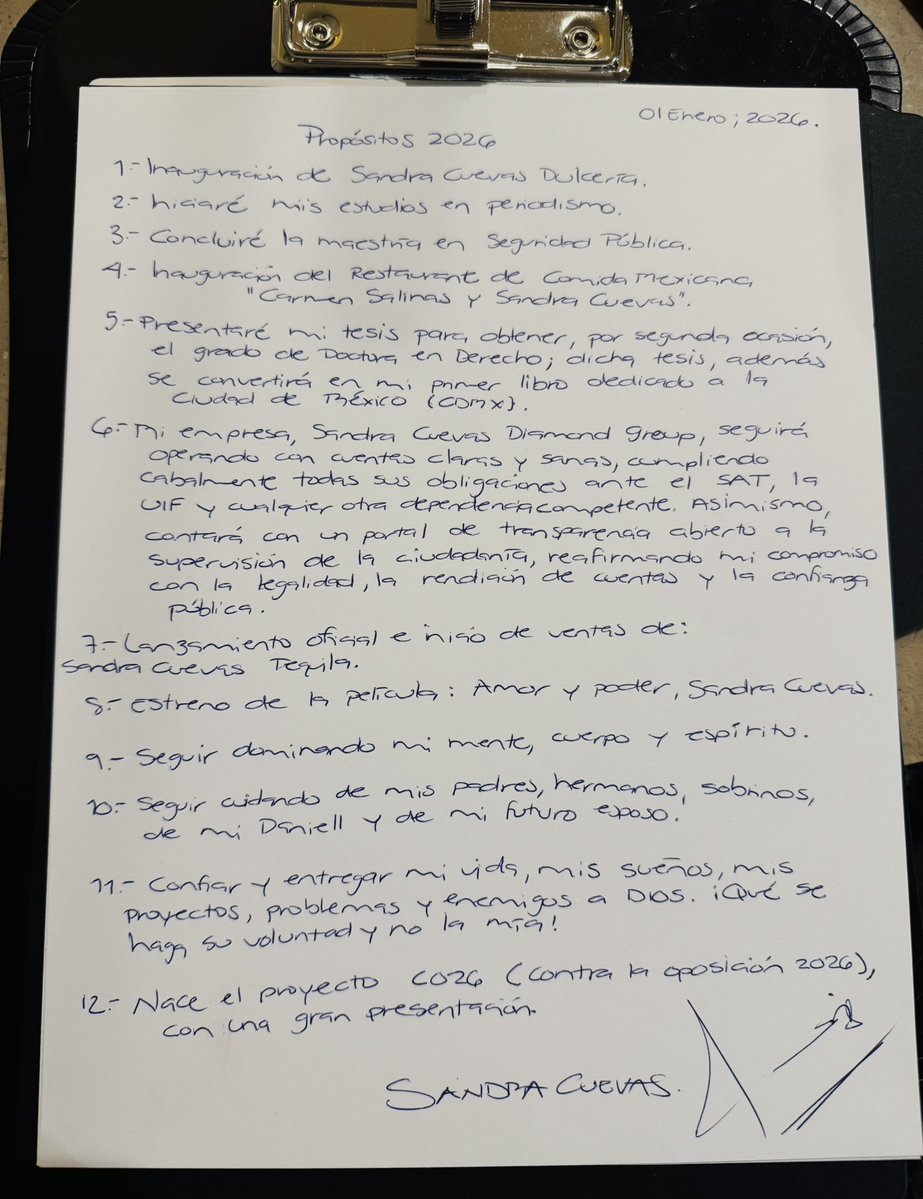 01 Enero; 2026.
Propósitos 2026
1.- Inauguración de Sandra Cuevas Dulcería.
2.- Iniciaré mis estudios en periodismo.
3.- Concluiré la maestría en Seguridad Pública.
4.- Inauguración del Restaurante de Comida Mexicana,
"Carmen Salinas y Sandra Cuevas".
5.- Presentaré mi tesis para obtener, por segunda ocasión,
el grado de Doctora en Derecho; dicha tesis, además
se convertirá en mi primer libro dedicado a la
Ciudad de México {CDMX}.
6.- Mi empresa, Sandra Cuevas Diamond Group, seguirá
operando con cuentas claras y sanas, cumpliendo
cabalmente todas sus obligaciones ante el SAT, la
UIF y cualquier otra dependencia competente. Asimismo,
contará con un portal de transparencia abierto a la
supervisión de la ciudadanía, reafirmando mi compromiso
con la legalidad, la rendición de cuentas y la confianza
pública.
7.- Lanzamiento oficial e inicio de ventas de:
Sandra Cuevas Tequila.
8.- Estreno de la película: Amor y poder, Sandra Cuevas.
9.- Seguir dominando mi mente, cuerpo y espíritu.
10.- Seguir cuidando de mis padres, hermanos, sobrinos,
de mi Daniell y de mi futuro esposo.
11.- Confiar y entregar mi vida, mis sueños, mis
proyectos, problemas y enemigos a DIOS. ¡Qué se
haga su voluntad y no la mía!
12.- Nace el proyecto CO26 (Contra la oposición 2026),
con una gran presentación.
SANDRA CUEVAS.